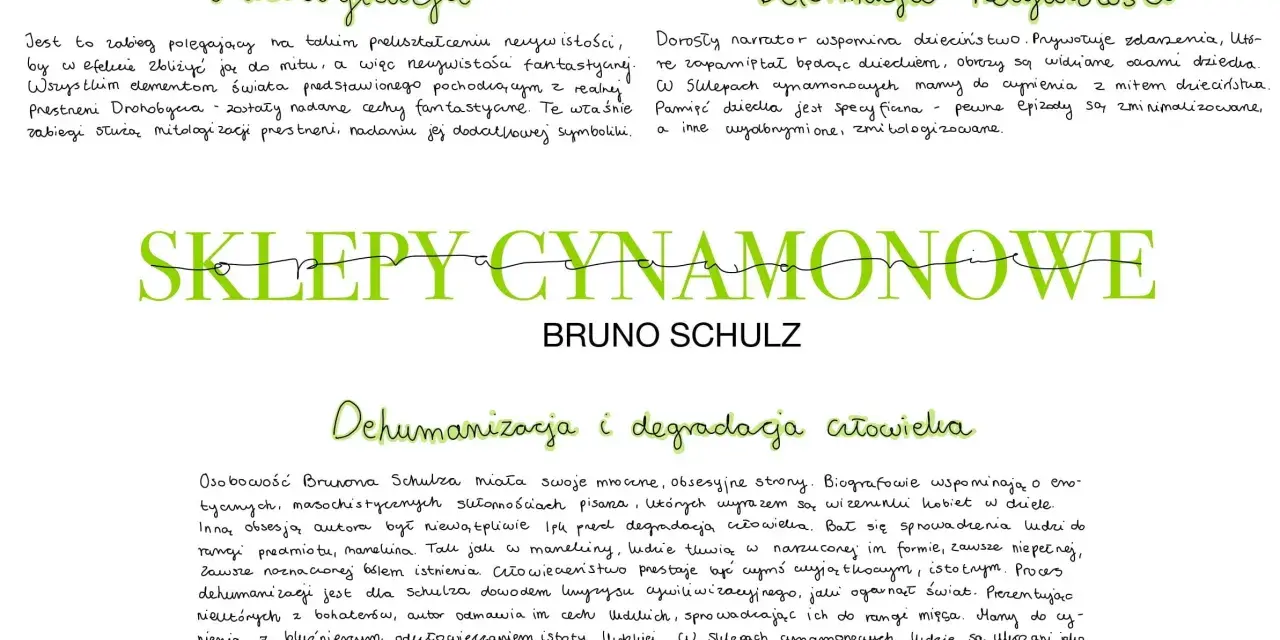 Jest to zabieg polegający na takim przekształceniu rzeczywistości,
by w efekcie zbliżyć ją do mitu, a więc rzeczywistości fantastycznej.
Wszystkim elementom świata przedstawionego pochodzącym z realnej
przestrzeni Drohobycza - zostały nadane cechy fantastyczne. Te właśnie
zabiegi służą mitologizacji przestrzeni, nadaniu jej dodatkowej symboliki.
Dorosły narrator wspomina dzieciństwo. Przywołuje zdarzenia, któ-
re zapamiętał będąc dzieckiem, obrazy są widziane oczami dziecka.
W Sklepach cynamonowych mamy do czynienia z mitem dzieciństwa.
Pamięć dziecka jest specyficzna - pewne epizody są zminimalizowane,
a inne wyolbrzymione, zmitologizowane.
SKLEPY CYNAMONOWE
opracowanie
BRUNO SCHULZ
Dehumanizacja i degradacja człowieka
Osobowość Brunona Schulza miała swoje mroczne, obsesyjne strony. Biografowie wspominają o ero-
tycznych, masochistycznych skłonnościach pisarza, których wyrazem są wizerunki kobiet w dziele.
Inną obsesją autora był niewątpliwie lęk przed degradacją człowieka. Bał się sprowadzenia ludzi do
rangi przedmiotu, manekina. Tak jak w manekiny, ludzie tkwią w narzuconej im formie, zawsze niepełnej,
zawsze naznaczonej bólem istnienia. Człowieczeństwo przestaje być czymś wyjątkowym, istotnym. Proces
dehumanizacji jest dla Schulza dowodem kryzysu cywilizacyjnego, jaki ogarnął świat. Prezentując
niektórych z bohaterów, autor odmawia im cech ludzkich, sprowadzając ich do rangi mięsa. Mamy do czy-
nienia z bluźnierczym odczłowieczaniem istoty ludzkiej. W Sklepach cynamonowych ludzie są ukazani jako